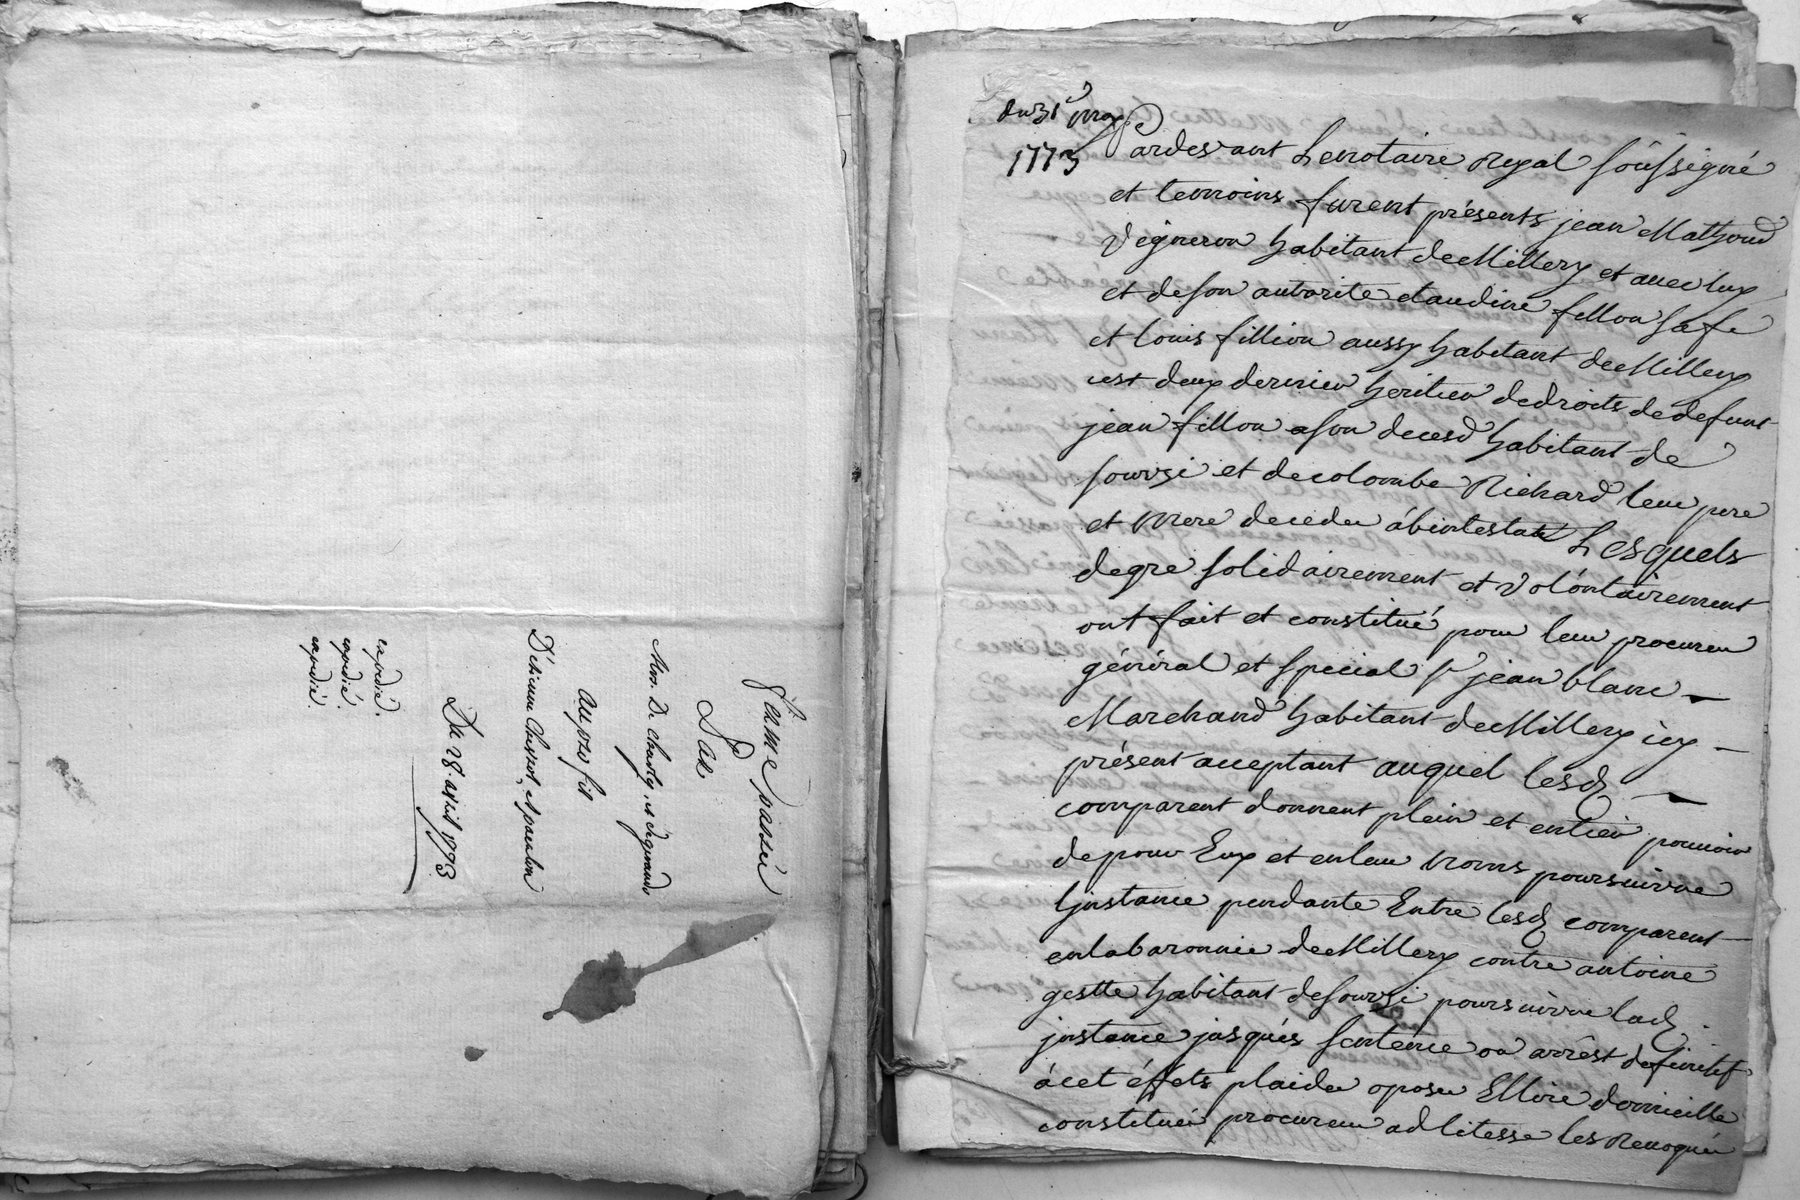 ferme passée
Par
Mrs. De Charly, et deguerando
Au profit
D'étienne Chazot, et paulon
Du 28. avril 1773
expédié.
expédié.
expédié.
du 31e may
1773
Pardevant Le notaire Royal Soussigné
et temoins furent présents jean Mathoud
Vigneron habitant de Millery et avec luy
et de son autorité claudine fillon sa fe
et louis fillion aussy habitant de Millery
cest deux dernier heritier de droits de defunt
jean fillon a son deces habitant de
sourzi et de colombe Richard leur pere
et mere decedee abintestate Lesquels
degré solidairement et Volontairement
ont fait et constitué pour leur procureur
général et special sr jean blanc
Marchand habitant de Millery icy
présent acceptant auquel lesd
comparent donnent plein et entier pouvoir
de pour Eux et en leur noms poursuivre
Linstance pendante Entre lesd comparent
en la baronnie de Millery contre antoine
gestte habitant de sourzi poursuivre lad
jnstance jusqués sentence ou arrêst definitif
á cet éffets plaider oposer Ellire domicille
constitué procureur ad litesse les Revoquer